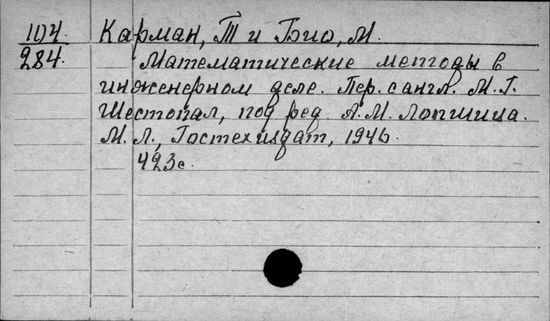 104. Карман, Т и Био, М.
284. Математические методы в
инженерном деле. Пер. с англ. М. Г.
Шестопал, под ред. А. М. Лопшица.
М. Л., Гостехиздат, 1946.
423 с.